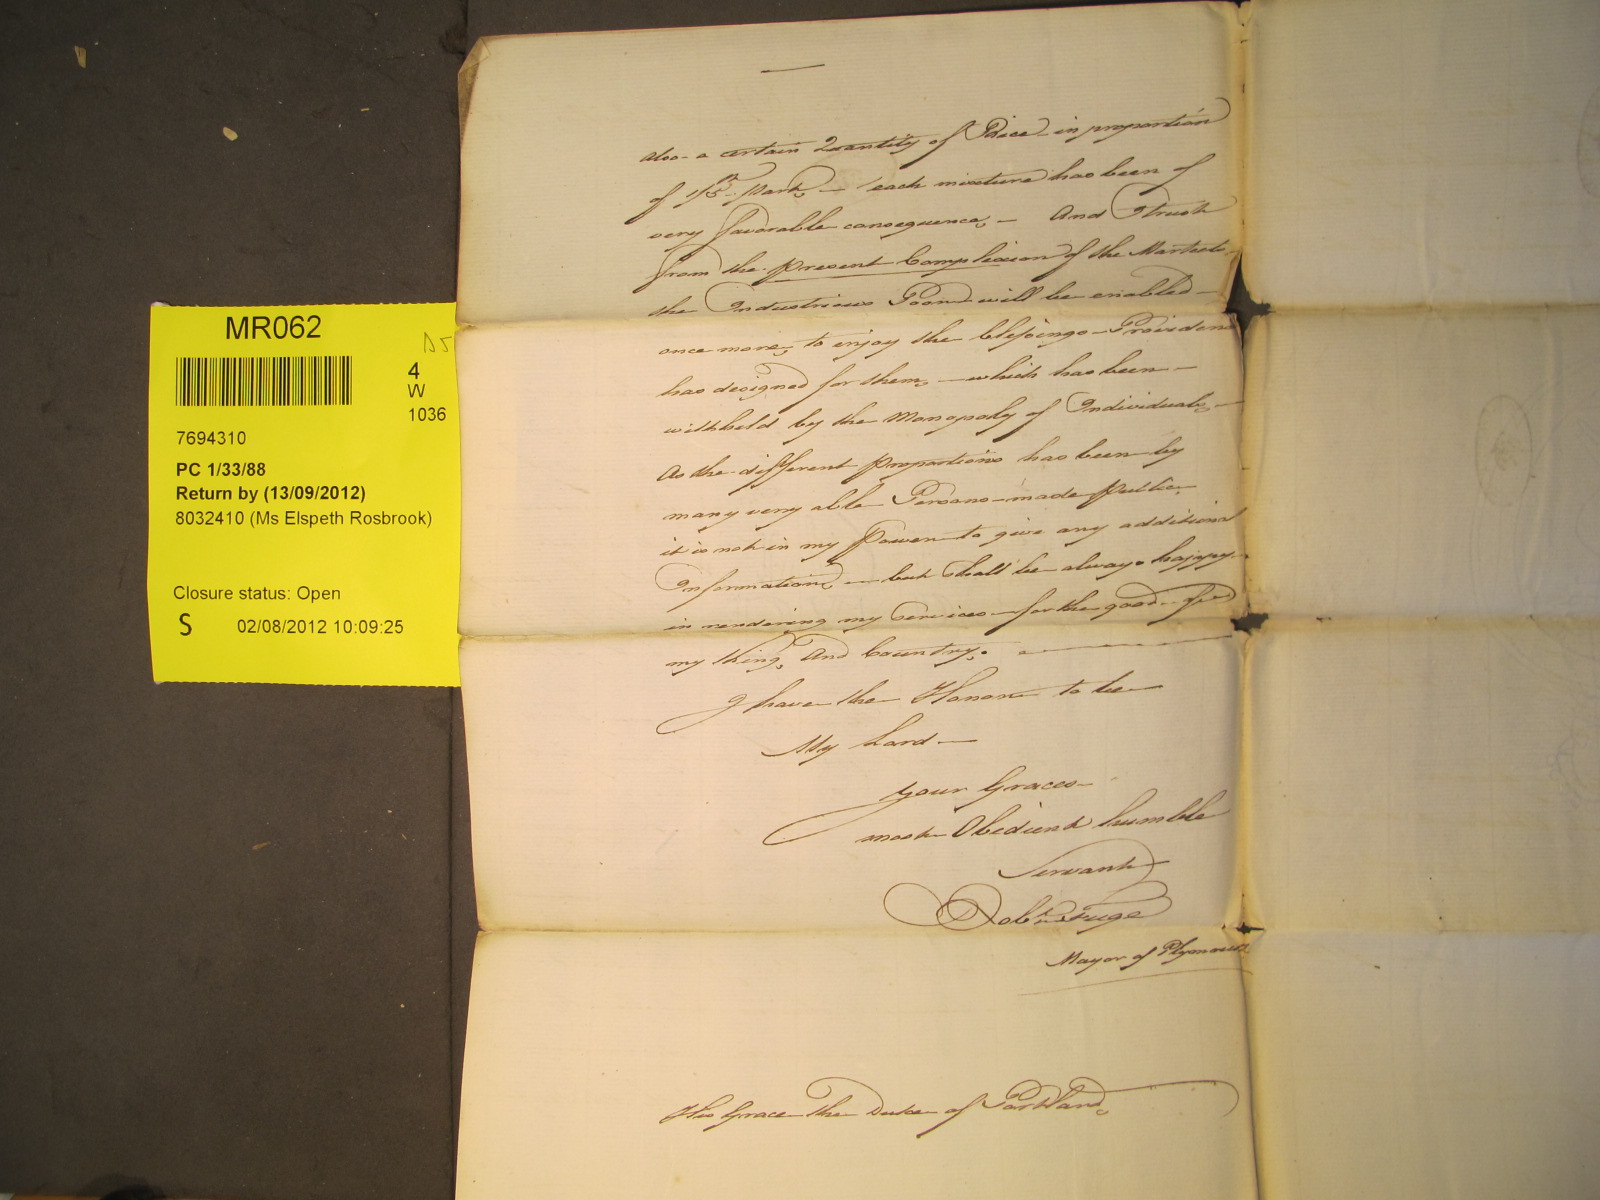 MR062
D5
4
W
1036
7694310
PC 1/33/88
Return by (13/09/2012)
8032410 (Ms Elspeth Rosbrook)
Closure status: Open
S 02/08/2012 10:09:25
also a certain Quantity of Rice in proportion
of 1/5th Part, — each mixture has been of
very favorable consequence, — And I trust
from the present Complexion of the Markets
the Industrious Poor will be enabled —
once more, to enjoy the blessings Providence
has designed for them, — which has been —
withheld by the Monopoly of Individuals, —
As the different proportions has been by
many very able Persons made public,
it is not in my Power to give any additional
Information, — but shall be always happy
in rendering my Services for the good of
my King, And Country. —
I have the Honor to be
My Lord —
Your Graces
most Obedient humble
Servant
Robt Fuge
Mayor of Plymouth
His Grace The Duke of Portland,